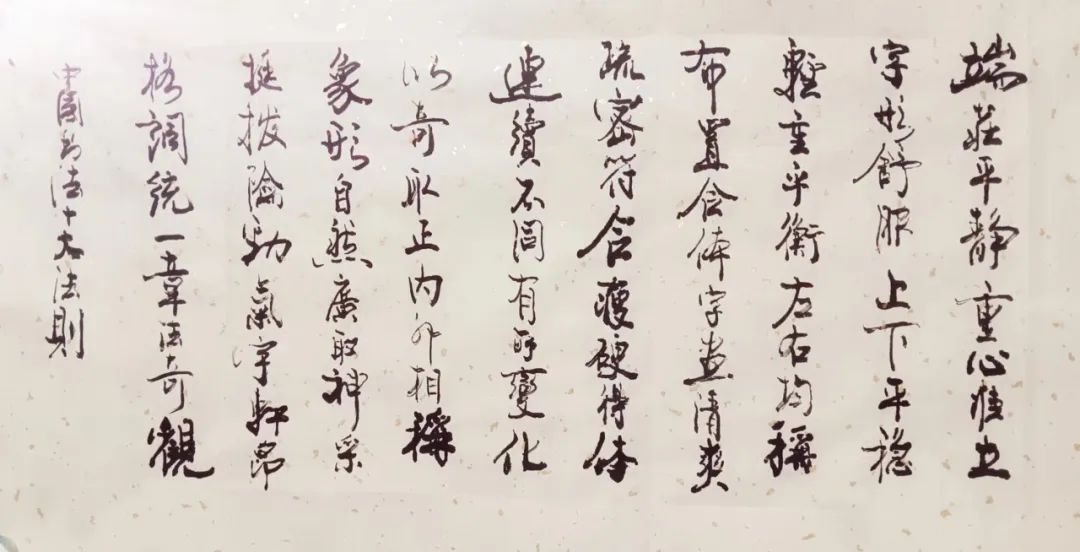 端莊平靜重心準立
字形舒服上下平稳
輕重平衡左右均稱
布置合体字畫清爽
疏密符合瘦硬得体
連續不同有所變化
以奇取正内外相稱
象形自然廣取神采
挺拔險勁氣宇軒昂
格調統一章法奇觀
中国书法十大法則